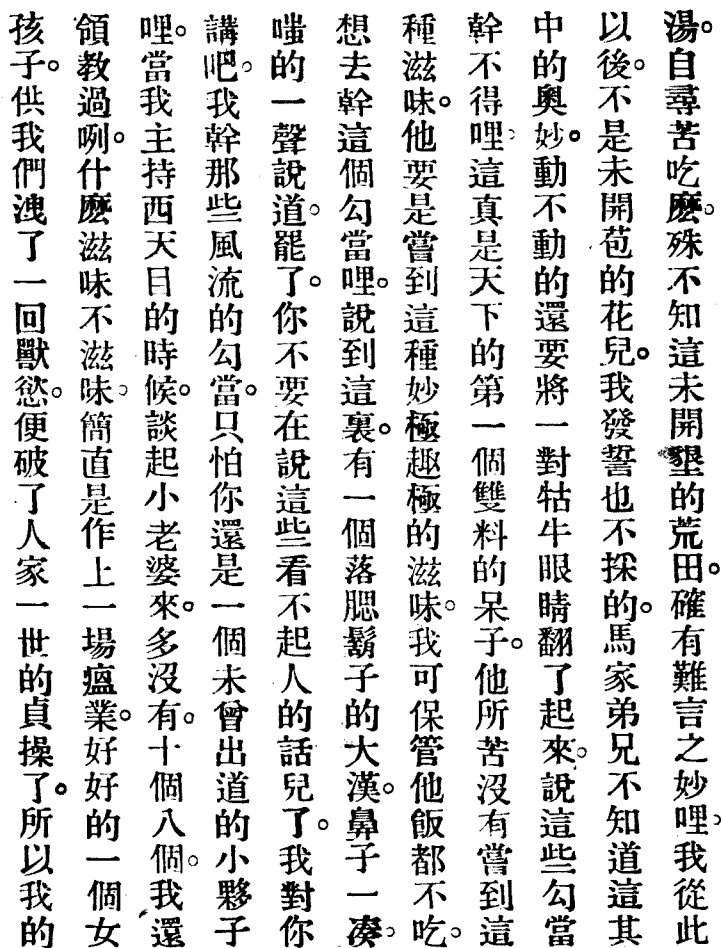 湯。自尋苦吃麽。殊不知這未開墾的荒田。確有難言之妙哩。我從此
以後。不是未開苞的花兒。我發誓也不採的。馬家弟兄不知道這其
中的奧妙。動不動的還要將一對牯牛眼睛翻了起來。說這些勾當
幹不得哩。這真是天下的第一個雙料的呆子。他所苦沒有嘗到這
種滋味。他要是嘗到這種妙極趣極的滋味。我可保管他飯都不吃。
想去幹這個勾當哩。說到這裏。有一個落腮鬍子的大漢。鼻子一凑。
嗤的一聲說道。罷了。你不要在說這些看不起人的話兒了。我對你
講吧。我幹那些風流的勾當。只怕你還是一個未曾出道的小夥子
哩。當我主持西天目的時候。談起小老婆來。多沒有。十個八個。我還
領教過咧。什麽滋味不滋味。簡直是作上一場瘟業。好好的一個女
孩子。供我們洩了一回獸慾。便破了人家一世的貞操了。所以我的